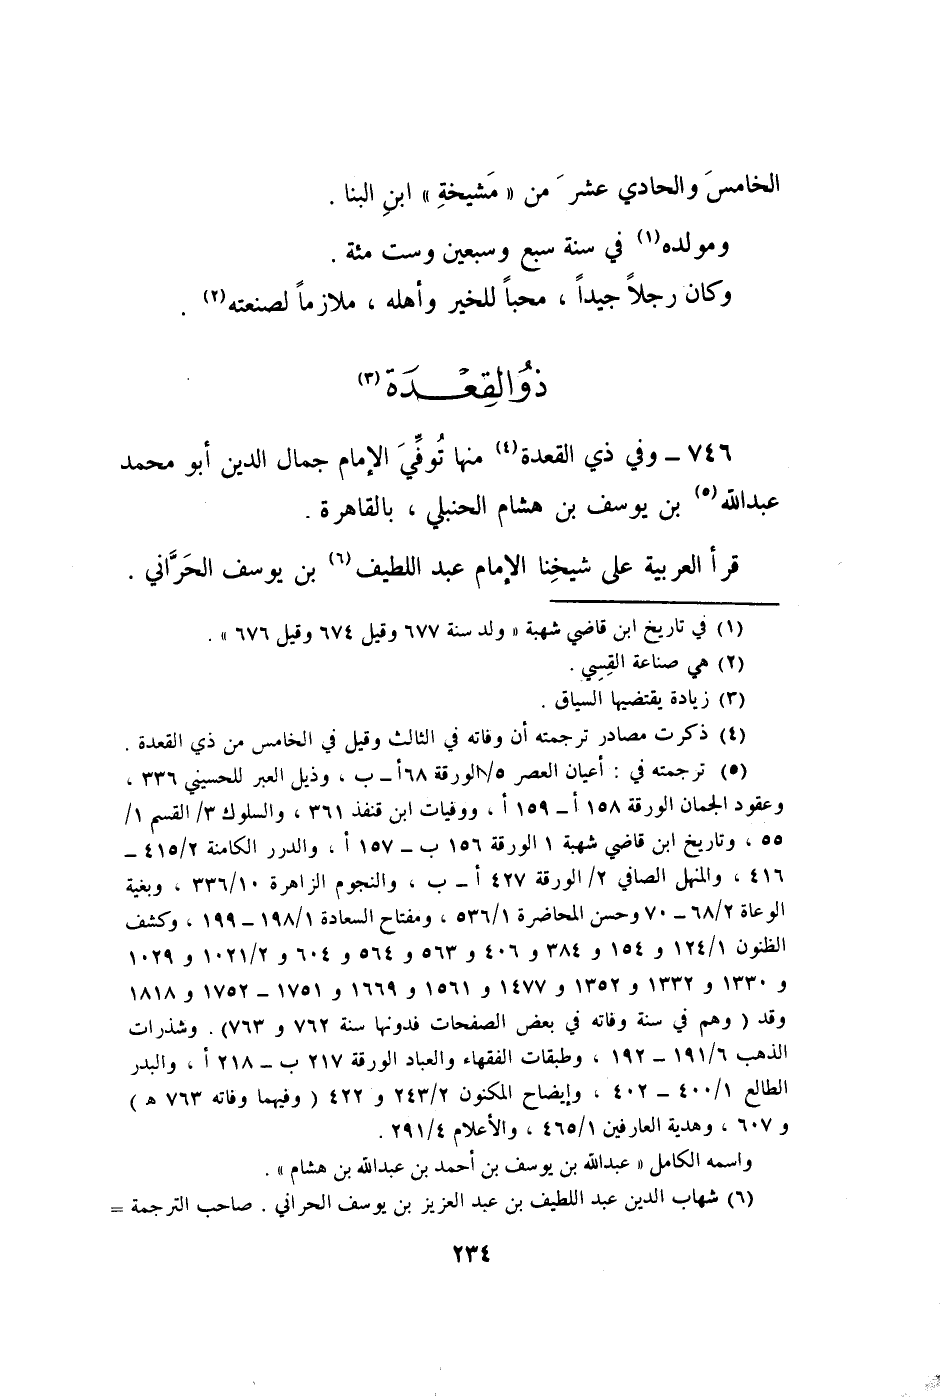 الخامسَ والحادي عشرَ من « مَشيخةِ » ابنِ البنا .
ومولده(١) في سنة سبع وسبعين وست مئة .
وكان رجلاً جيداً ، محباً للخير وأهله ، ملازماً لصنعته(٢) .
ذُو القِعْـدَة(٣)
٧٤٦ ـ وفي ذي القعدة(٤) منها تُوفِّيَ الإمام جمال الدين أبو محمد
عبدالله(٥) بن يوسف بن هشام الحنبلي ، بالقاهرة .
قرأ العربية على شيخِنا الإمام عبد اللطيف(٦) بن يوسف الحَرَّاني .
(١) في تاريخ ابن قاضي شهبة « ولد سنة ٦٧٧ وقيل ٦٧٤ وقيل ٦٧٦ » .
(٢) هي صناعة القِسِي .
(٣) زيادة يقتضيها السياق .
(٤) ذكرت مصادر ترجمته أن وفاته في الثالث وقيل في الخامس من ذي القعدة .
(٥) ترجمته في : أعيان العصر ٥/الورقة ٦٨أ ـ ب ، وذيل العبر للحسيني ٣٣٦ ،
وعقود الجمان الورقة ١٥٨ أ ـ ١٥٩ أ ، ووفيات ابن قنفذ ٣٦١ ، والسلوك ٣/ القسم ١/
٥٥ ، وتاريخ ابن قاضي شهبة ١ الورقة ١٥٦ ب ـ ١٥٧ أ ، والدرر الكامنة ٤١٥/٢ ـ
٤١٦ ، والمنهل الصافي ٢/ الورقة ٤٢٧ أ ـ ب ، والنجوم الزاهرة ٣٣٦/١٠ ، وبغية
الوعاة ٦٨/٢ ـ ٧٠ وحسن المحاضرة ٥٣٦/١ ، ومفتاح السعادة ١٩٨/١ ـ ١٩٩ ، وكشف
الظنون ١٢٤/١ و ١٥٤ و ٣٨٤ و ٤٠٦ و ٥٦٣ و ٥٦٤ و ٦٠٤ و ١٠٢١/٢ و ١٠٢٩
و ١٣٣٠ و ١٣٣٢ و ١٣٥٢ و ١٤٧٧ و ١٥٦١ و ١٦٦٩ و ١٧٥١ ـ ١٧٥٢ و ١٨١٨
وقد ( وهم في سنة وفاته في بعض الصفحات فدونها سنة ٧٦٢ و ٧٦٣) . وشذرات
الذهب ١٩١/٦ ـ ١٩٢ ، وطبقات الفقهاء والعباد الورقة ٢١٧ ب ـ ٢١٨ أ ، والبدر
الطالع ٤٠٠/١ ـ ٤٠٢ ، وإيضاح المكنون ٢٤٣/٢ و ٤٢٢ ( وفيهما وفاته ٧٦٣ هـ )
و ٦٠٧ ، وهدية العارفين ٤٦٥/١ ، والأعلام ٢٩١/٤ .
واسمه الكامل « عبدالله بن يوسف بن أحمد بن عبدالله بن هشام » .
(٦) شهاب الدين عبد اللطيف بن عبد العزيز بن يوسف الحراني . صاحب الترجمة =
٢٣٤